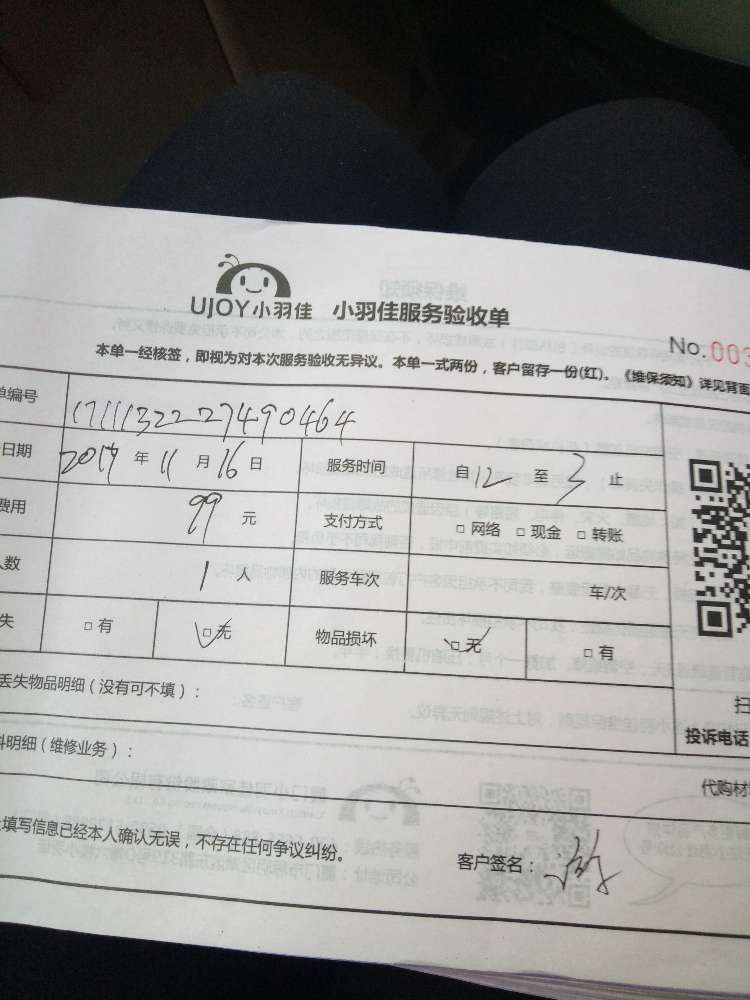 UJOY小羽佳 小羽佳服务验收单
No.003
本单一经核签，即视为对本次服务验收无异议。本单一式两份，客户留存一份(红)。《维保须知》详见背面
单编号 17111322227490464
日期 2017 年 11 月 16 日 服务时间 自 12 至 3 止
费用 99 元 支付方式 □ 网络 □ 现金 □ 转账
人数 1 人 服务车次 车/次
失 □ 有 □ 无 物品损坏 □ 无 □ 有
丢失物品明细（没有可不填）：
扫
料明细（维修业务）：
投诉电话
代购材
填写信息已经本人确认无误，不存在任何争议纠纷。 客户签名：